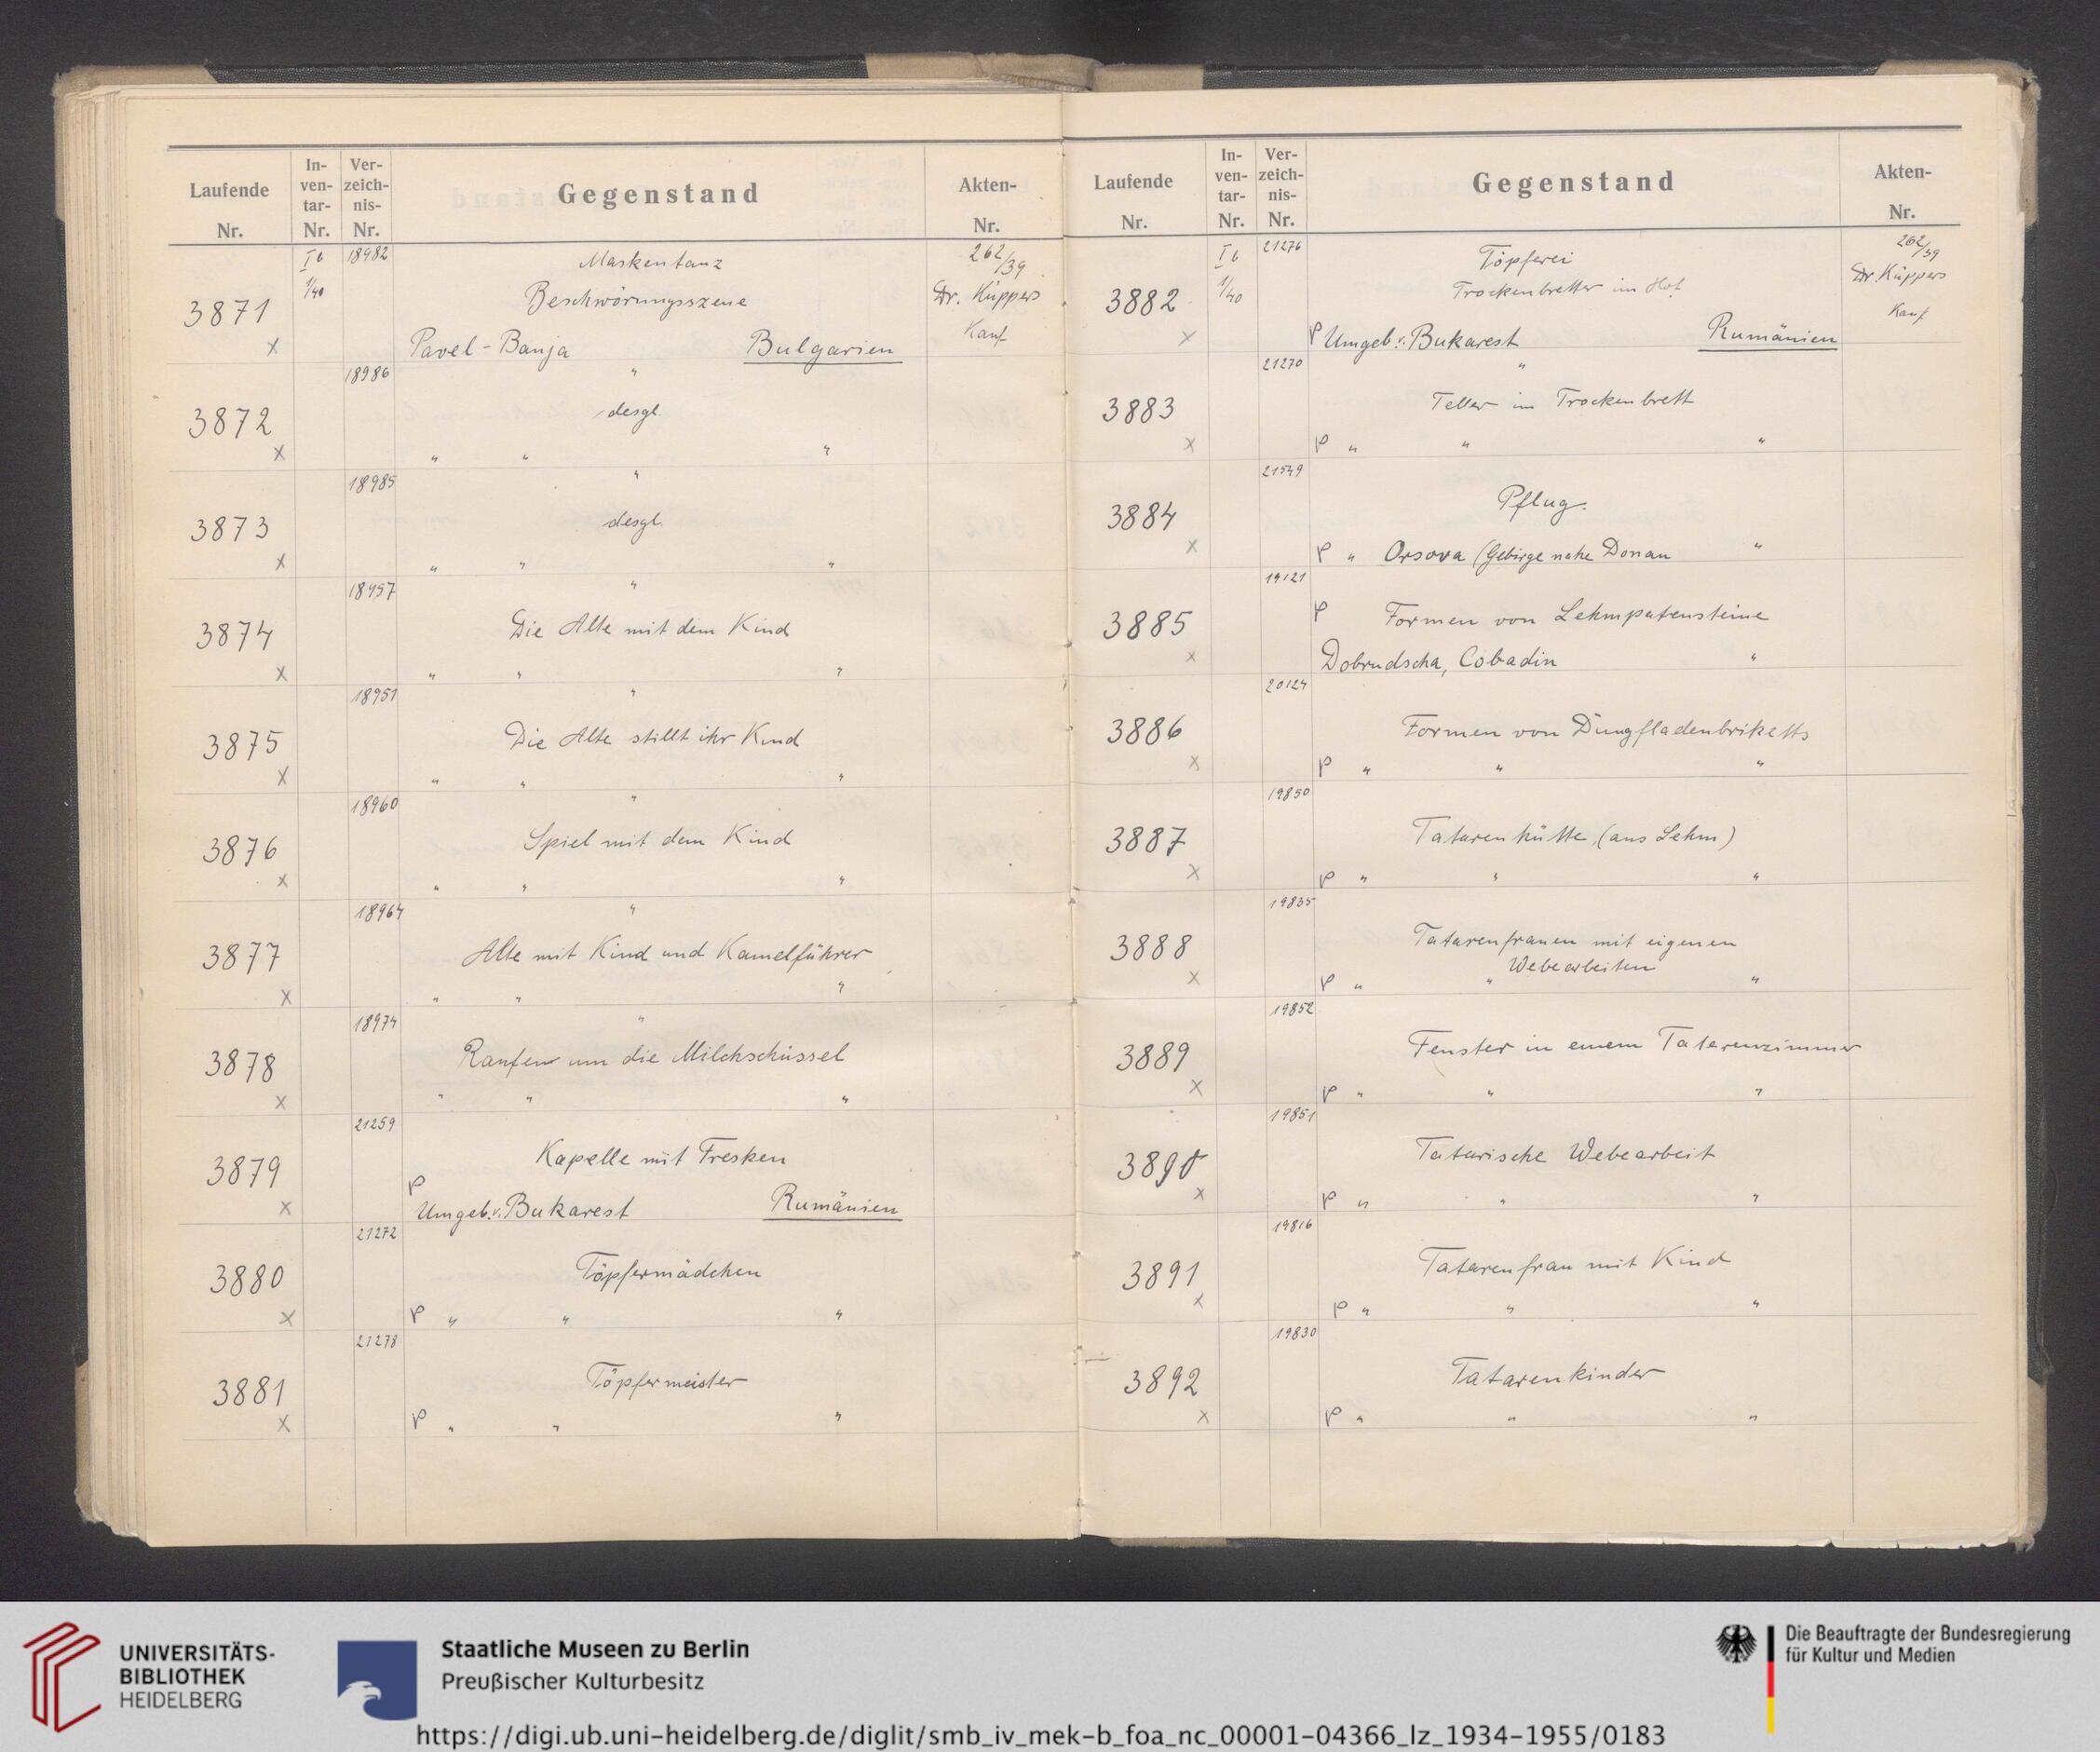 Laufende Nr.
In-ven-tar-Nr.
Ver-zeich-nis-Nr.
Gegenstand
Akten-Nr.
3871 x
I b 1/40
18982
Maskentanz
Beschwörungsszene
Pavel-Banja Bulgarien
262/39
Dr. Küppers
Kauf
3872 x
18986
"
desgl.
" " "
3873 x
18985
"
desgl.
" " "
3874 x
18957
"
Die Alte mit dem Kind
" " "
3875 x
18951
"
Die Alte stillt ihr Kind
" " "
3876 x
18960
"
Spiel mit dem Kind
" " "
3877 x
18964
"
Alte mit Kind und Kamelführer
" " "
3878 x
18974
"
Raufen um die Milchschüssel
" " "
3879 x
21259
Kapelle mit Fresken
P
Umgeb. v. Bukarest Rumänien
3880 x
21272
Töpfermädchen
P " " "
3881 x
21278
Töpfermeister
P " " "
Laufende Nr.
In-ven-tar-Nr.
Ver-zeich-nis-Nr.
Gegenstand
Akten-Nr.
3882 x
I b 1/40
21276
Töpferei
Trockenbretter im Hof
P Umgeb. v. Bukarest Rumänien
262/39
Dr. Küppers
Kauf
3883 x
21270
"
Teller im Trockenbrett
P " " "
3884 x
21549
Pflug.
P " Orsova (Gebirge nahe Donau "
3885 x
19121
P Formen von Lehmpatensteine
Dobrudscha, Cobadin "
3886 x
20124
Formen von Dungfladenbriketts
P " " "
3887 x
19850
Tatarenhütte (aus Lehm)
P " " "
3888 x
19835
Tatarenfrauen mit eigenen
Webearbeiten
P " " "
3889 x
19852
Fenster in einem Tatarenzimmer
P " " "
3890 x
19851
Tatarische Webearbeit
P " " "
3891 x
19816
Tatarenfrau mit Kind
P " " "
3892 x
19830
Tatarenkinder
P " " "
UNIVERSITÄTS-
BIBLIOTHEK
HEIDELBERG
Staatliche Museen zu Berlin
Preußischer Kulturbesitz
Die Beauftragte der Bundesregierung
für Kultur und Medien
https://digi.ub.uni-heidelberg.de/diglit/smb_iv_mek-b_foa_nc_00001-04366_lz_1934-1955/0183